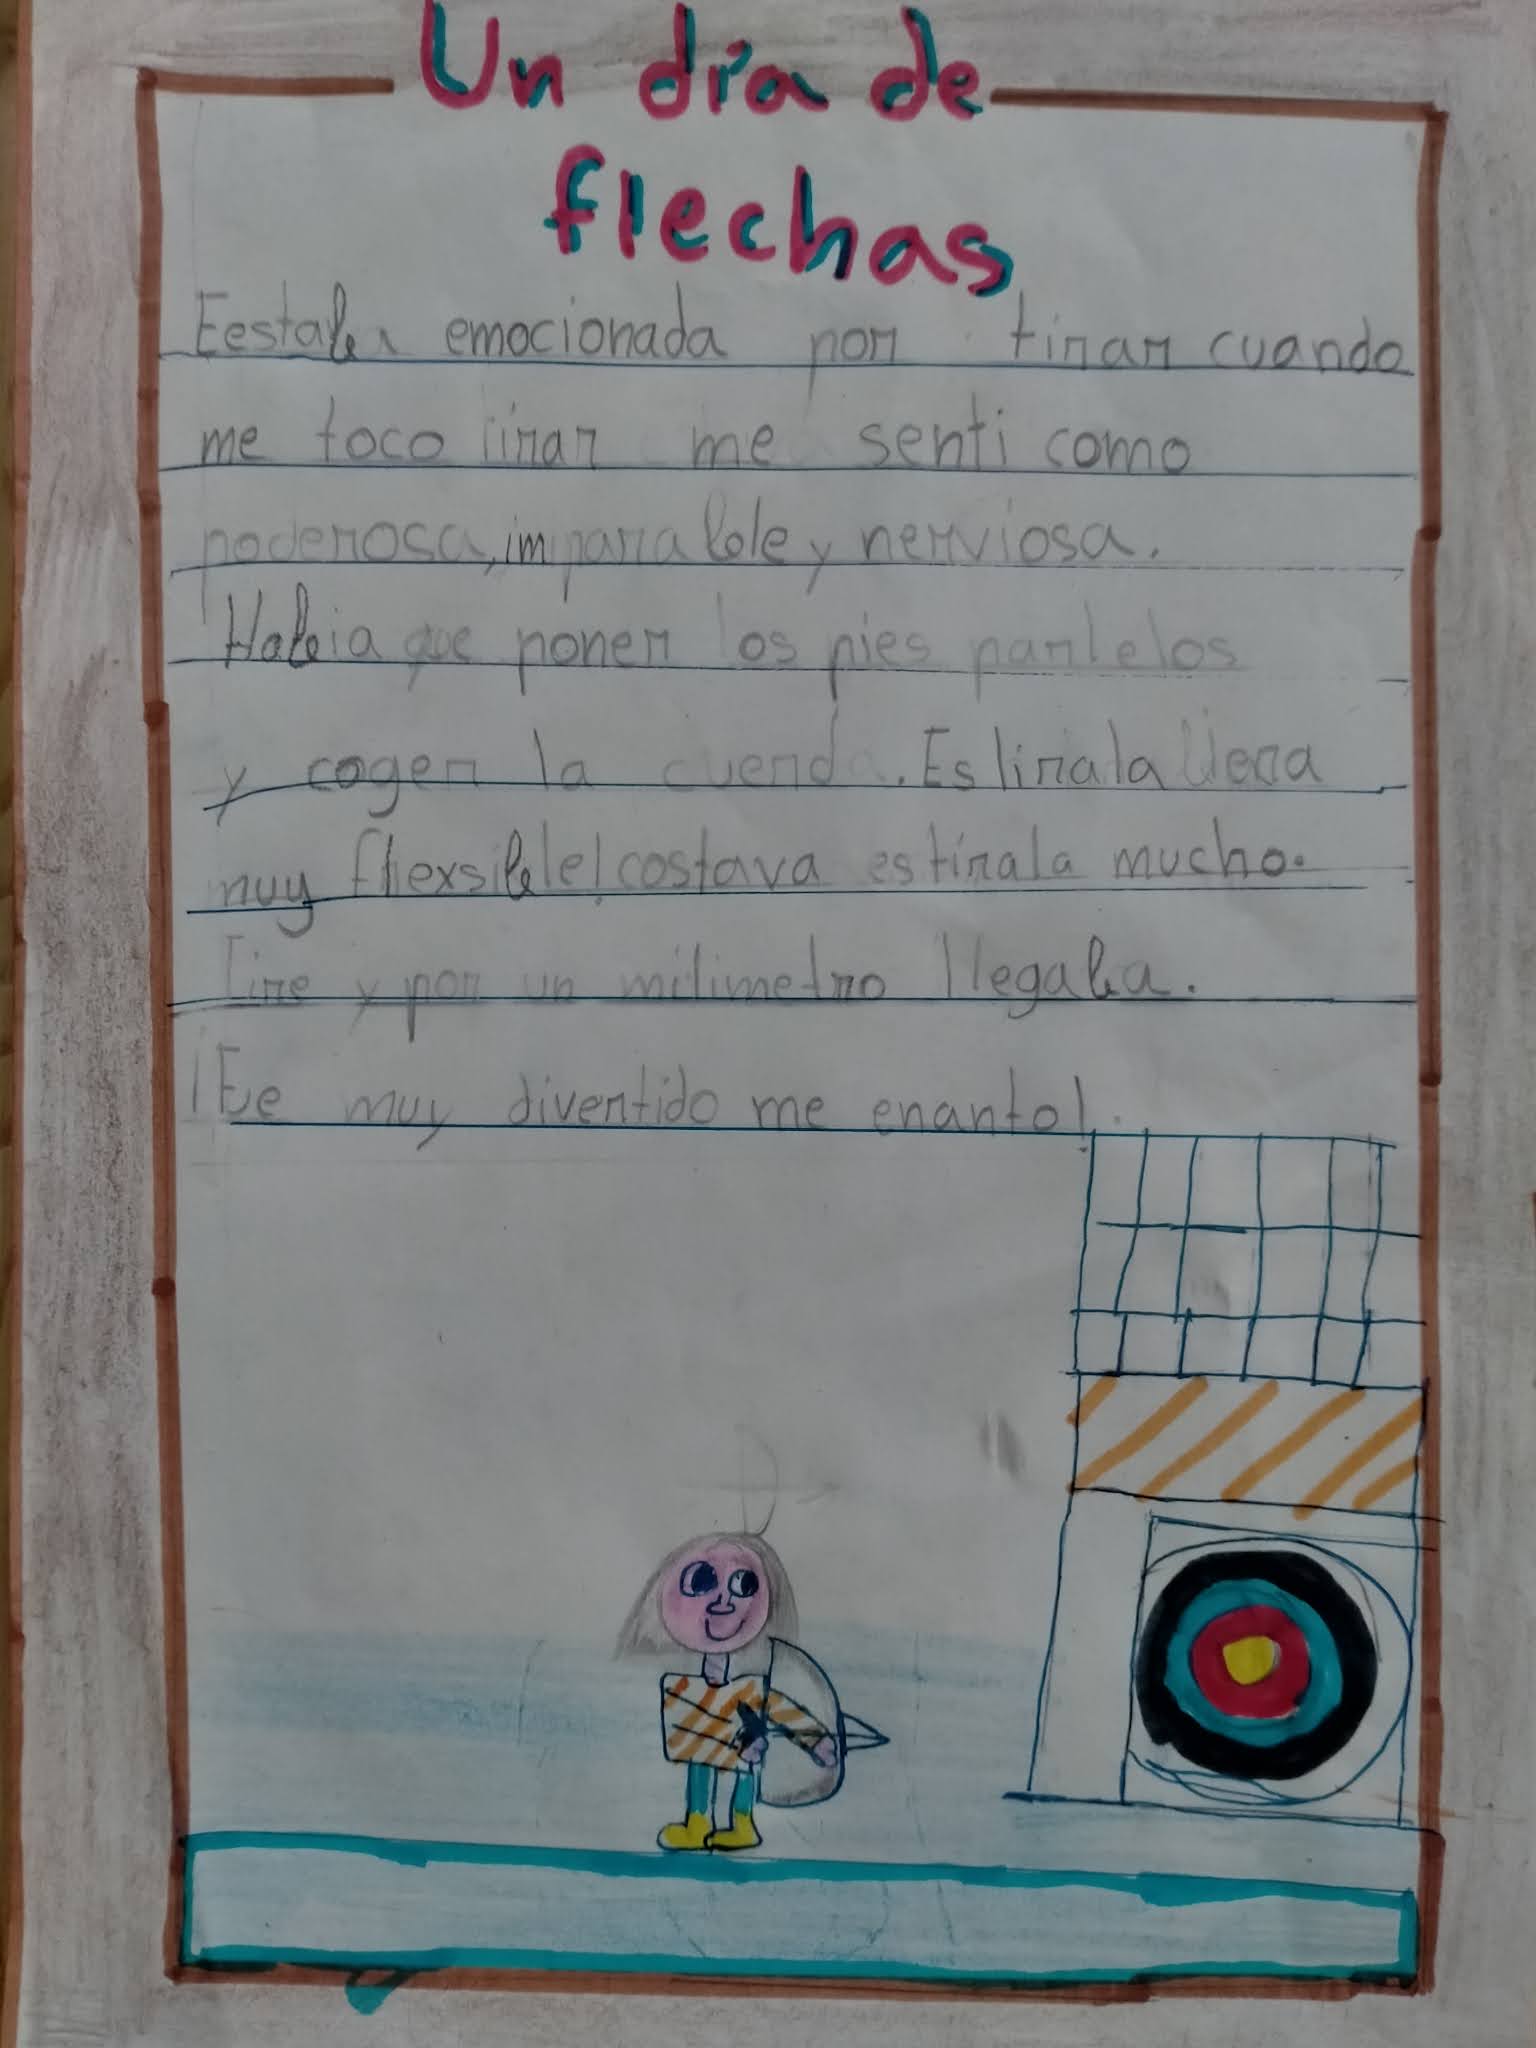 Un día de
flechas
Eestaba emocionada por tirar cuando
me toco tirar me senti como
poderosa, imparable y nerviosa.
Habia que poner los pies parlelos
y coger la cuerda. Estirala
muy flexsible! costava estirala mucho.
Tire y por un milimetro llegaba.
¡Fue muy divertido me enanto!.